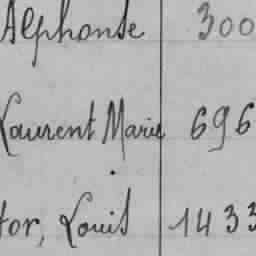 Alphonse 300
Laurent Marie 696
tor, Louis 1433